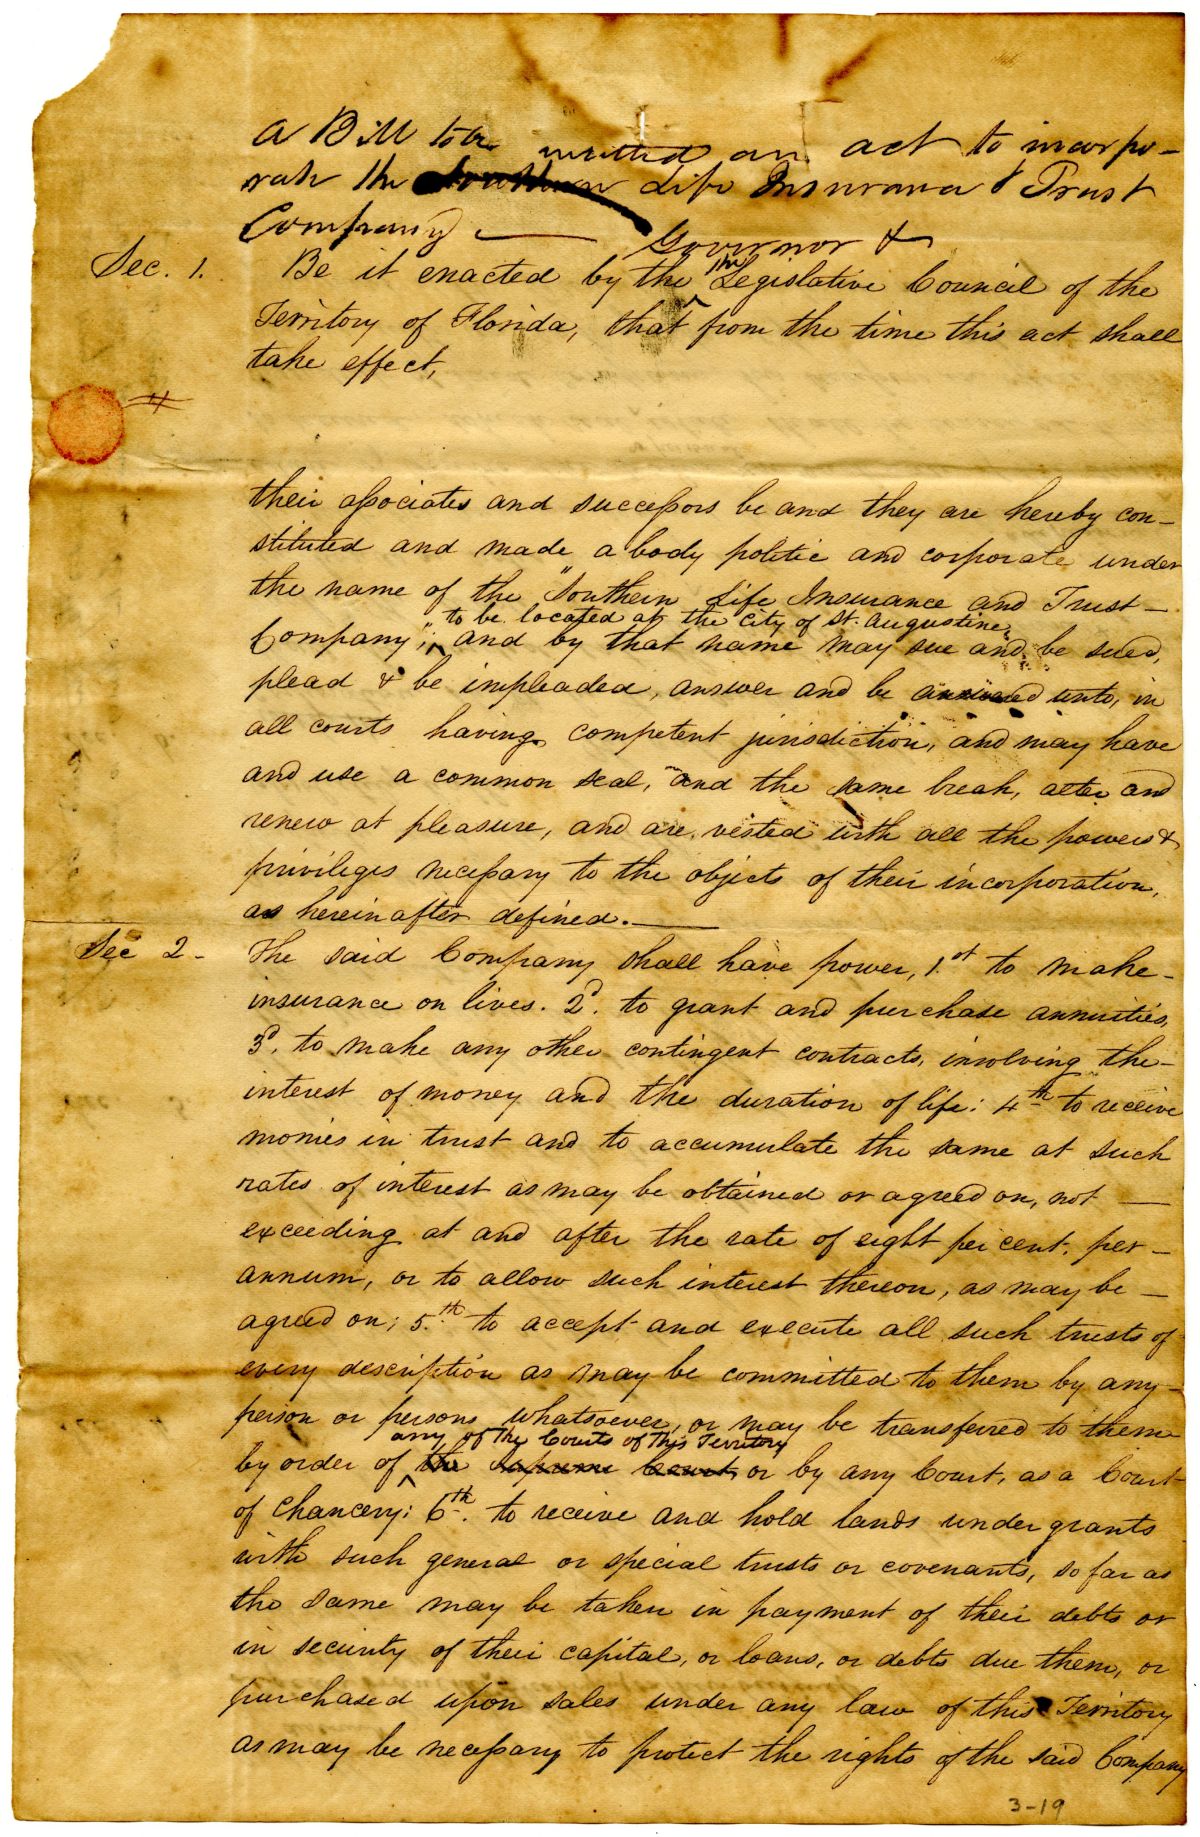 A Bill to be entitled an act to incorpo-
rate the Southern Life Insurance & Trust
Company —
Governor &
Sec. 1. Be it enacted by the the Legislative Council of the
Territory of Florida, that from the time this act shall
take effect,
their associates and successors be and they are hereby con-
stituted and made a body politic and corporate under
the name of the "Southern Life Insurance and Trust-
to be located at the City of St. Augustine
Company", and by that name may sue and be sued,
plead & be impleaded, answer and be answered unto, in
all courts having competent jurisdiction, and may have
and use a common seal, and the same break, alter and
renew at pleasure, and are vested with all the powers &
privileges necessary to the objects of their incorporation,
as hereinafter defined. —
Sec 2- The said Company shall have power, 1.st to make-
insurance on lives. 2d. to grant and purchase annuities,
3d. to make any other contingent contracts, involving the-
interest of money and the duration of life: 4th to receive
monies in trust and to accumulate the same at such
rates of interest as may be obtained or agreed on, not —
exceeding at and after the rate of eight per cent. per-
annum, or to allow such interest thereon, as may be —
agreed on; 5.th to accept and execute all such trusts of
every description as may be committed to them by any-
person or persons whatsoever, or may be transferred to them
any of the Courts of this Territory
by order of the Supreme Court, or by any Court, as a Court
of Chancery: 6th. to receive and hold lands under grants
with such general or special trusts or covenants, so far as
the same may be taken in payment of their debts or
in security of their capital, or loans, or debts due them, or
purchased upon sales under any law of this Territory
as may be necessary to protect the rights of the said Company
3-19